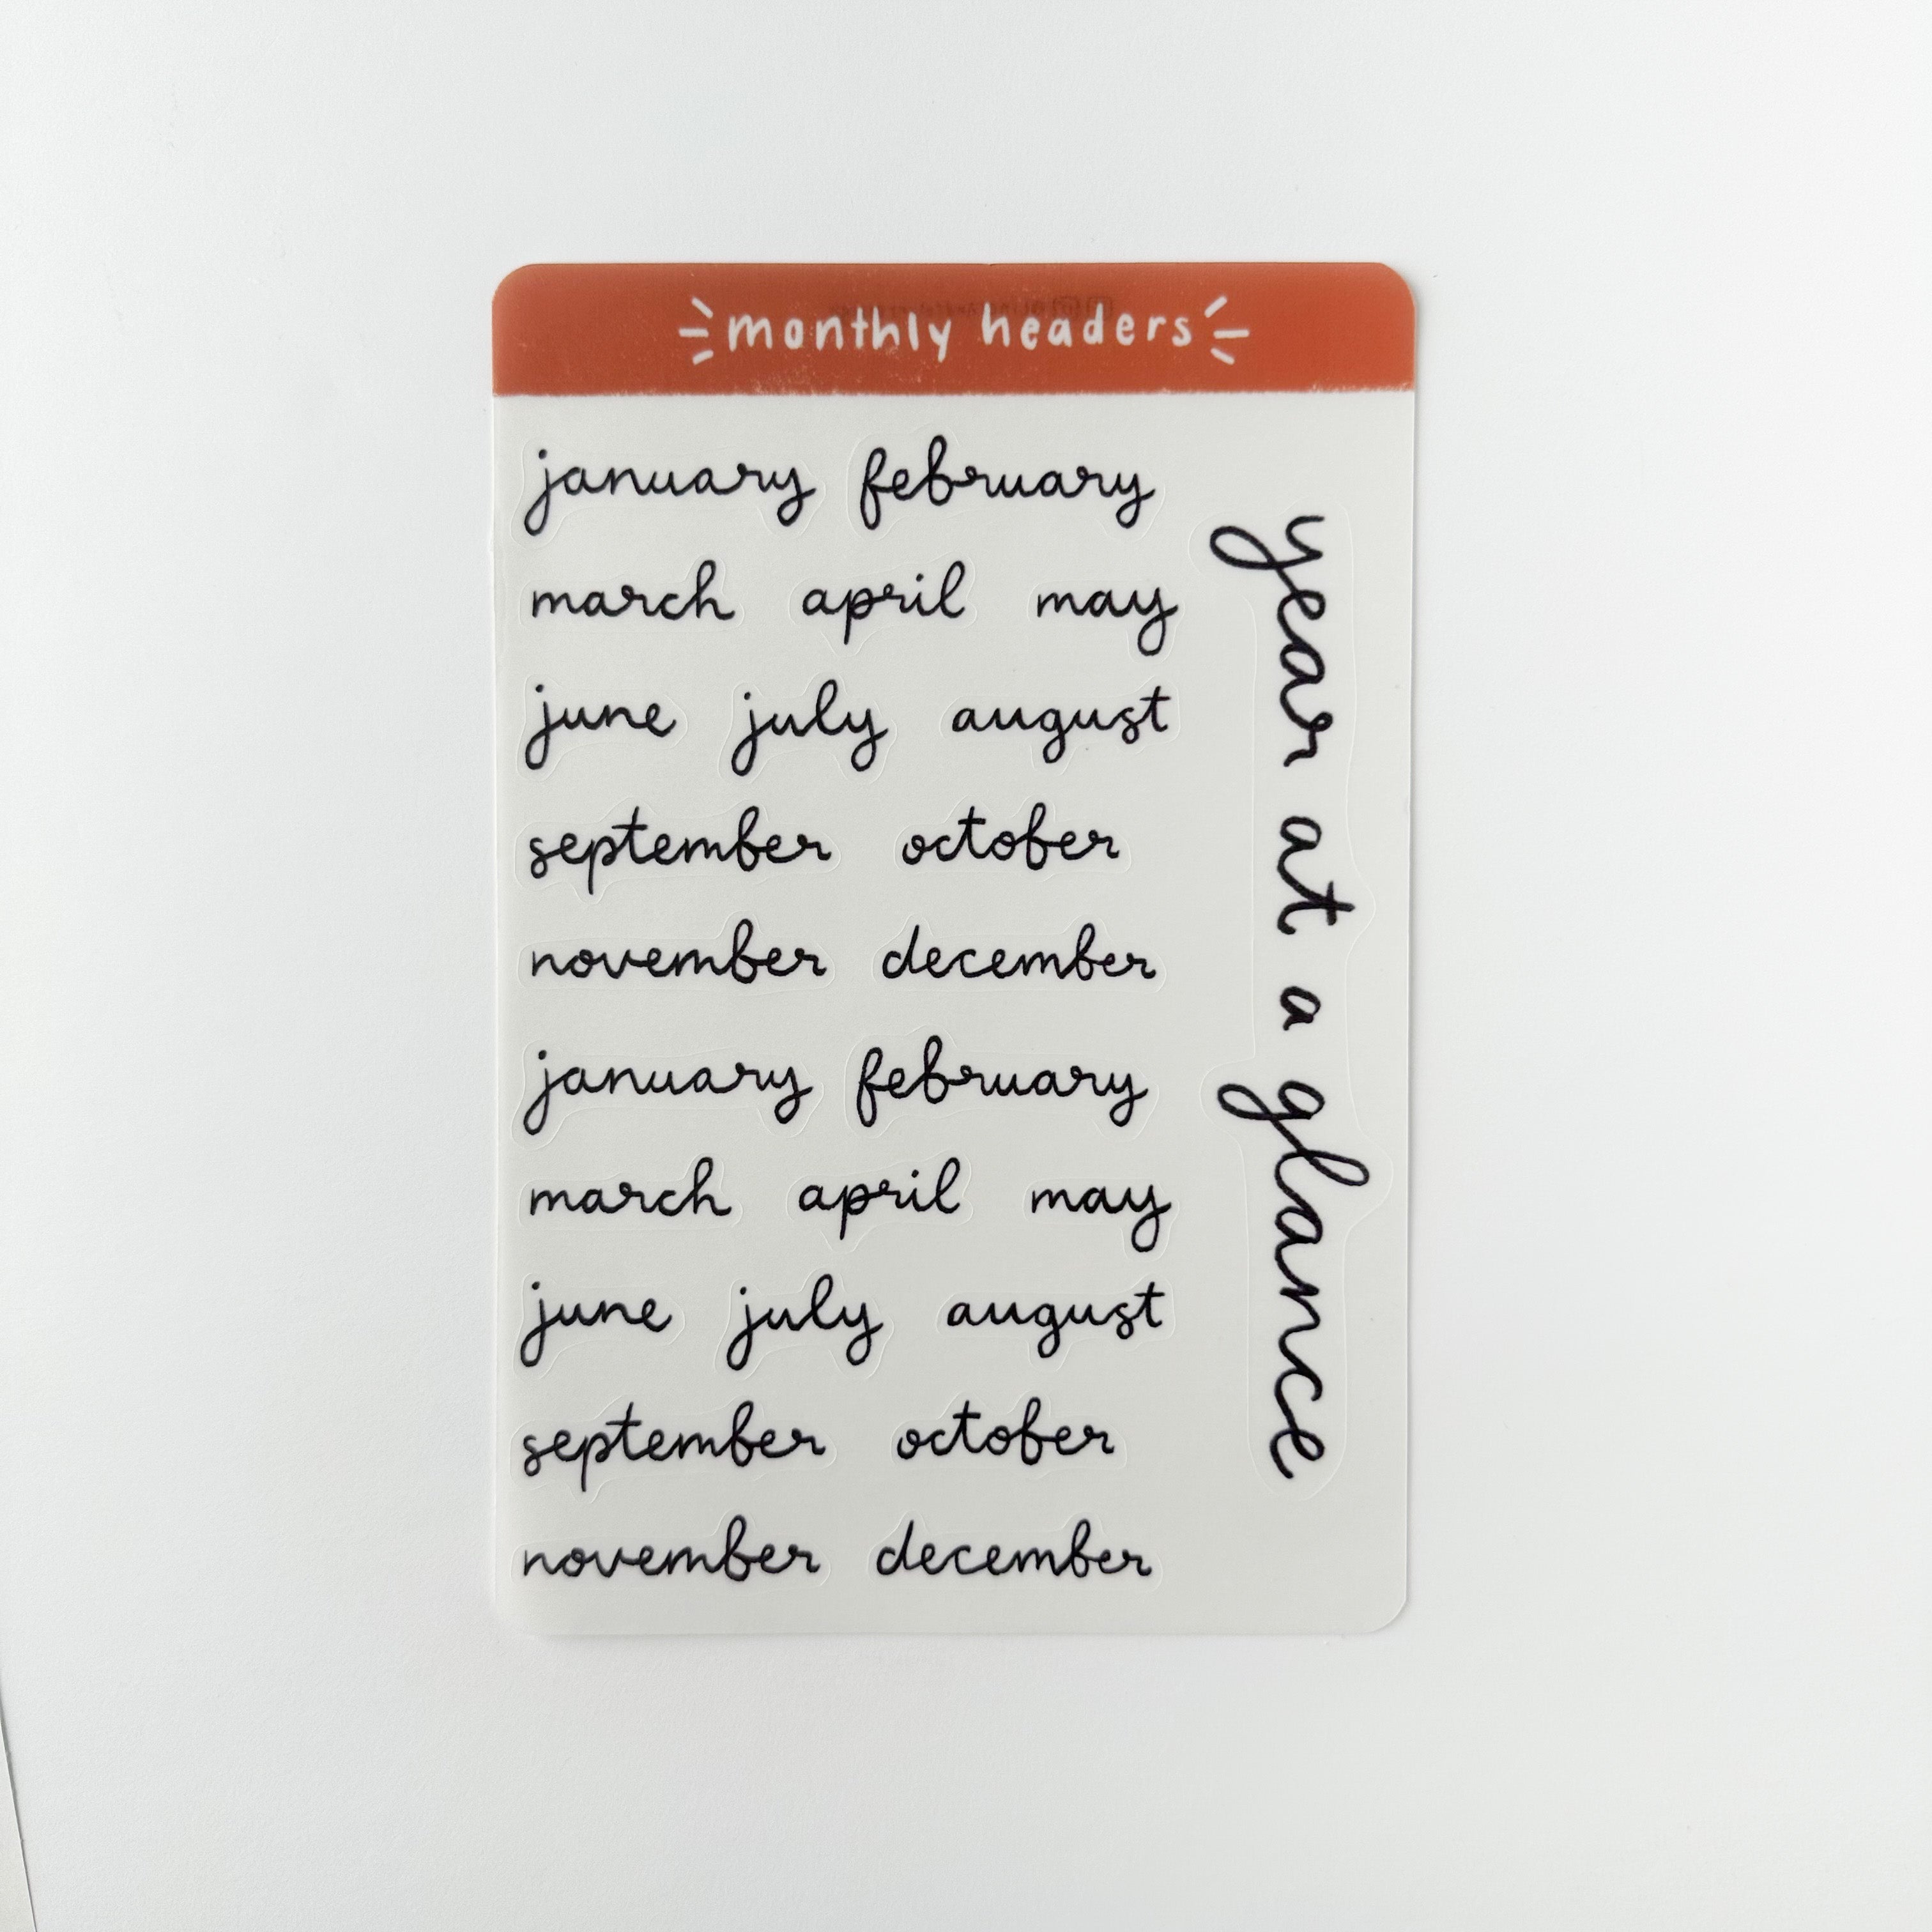 monthly headers
january february
march april may
june july august
september october
november december
january february
march april may
june july august
september october
november december
year at a glance